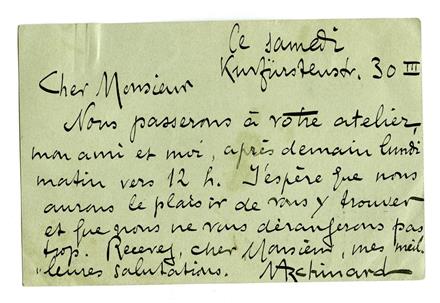 Ce samedi
Kurfürstenstr. 30 III
Cher Monsieur
Nous passerons à votre atelier,
mon ami et moi, après demain lundi
matin vers 12 h. J'espère que nous
aurons le plaisir de vous y trouver
et que nous ne vous dérangerons pas
trop. Recevez, cher Monsieur, mes meil-
"leures salutations.